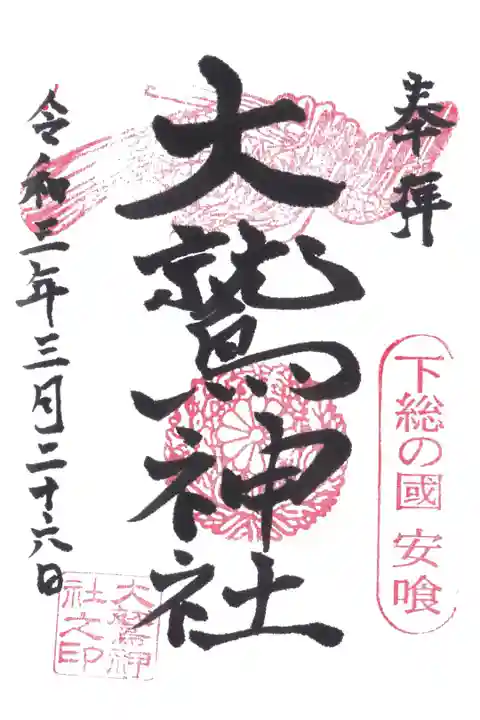 奉拝
下総の國 安喰
大鷲神社
令和二年三月二十六日
大鷲神
社之印